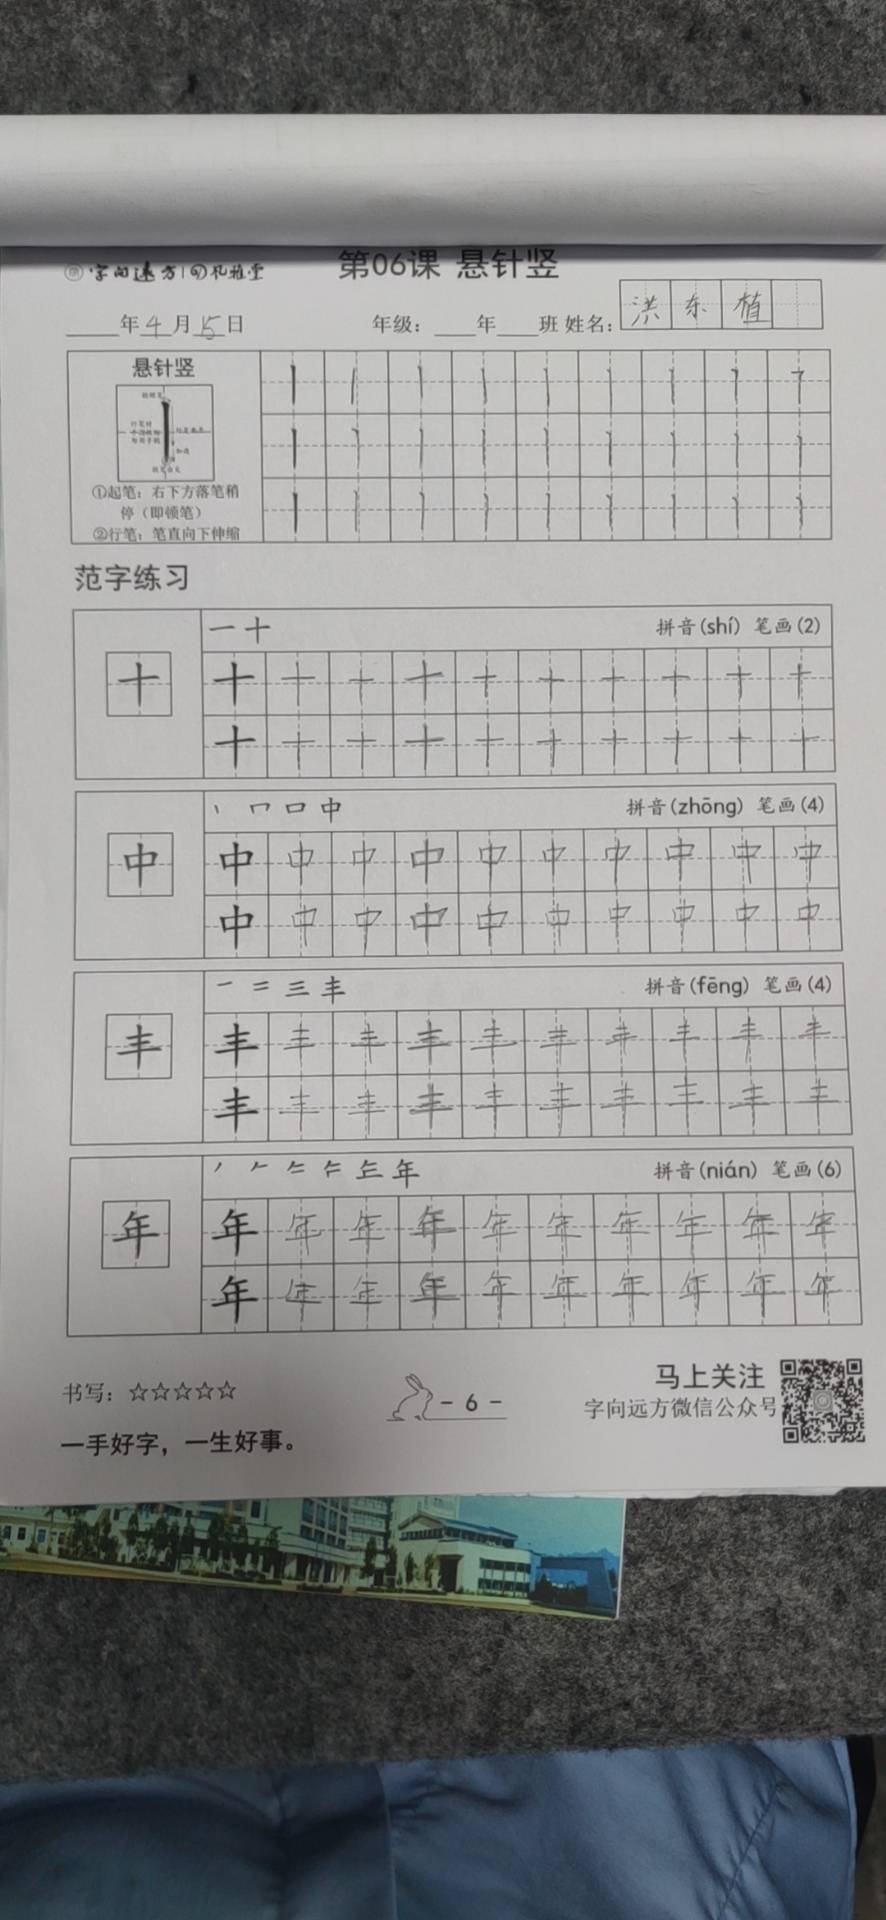 字向远方|回礼雅堂
第06课 悬针竖
年4月15日 年级: 年 班 姓名: 洪东植
悬针竖
①起笔：右下方落笔稍
停（即顿笔）
②行笔：笔直向下伸缩
范字练习
一十 拼音(shí) 笔画(2)
十 十十十十十十十十十十
十十十十十十十十十十
丨 口 中 拼音(zhōng) 笔画(4)
中 中中中中中中中中中中
中中中中中中中中中中
一 二 三 丰 拼音(fēng) 笔画(4)
丰 丰丰丰丰丰丰丰丰丰丰
丰丰丰丰丰丰丰丰丰丰
年 拼音(nián) 笔画(6)
年 年年年年年年年年年年
年年年年年年年年年年
书写：☆☆☆☆☆ - 6 - 马上关注
字向远方微信公众号
一手好字，一生好事。